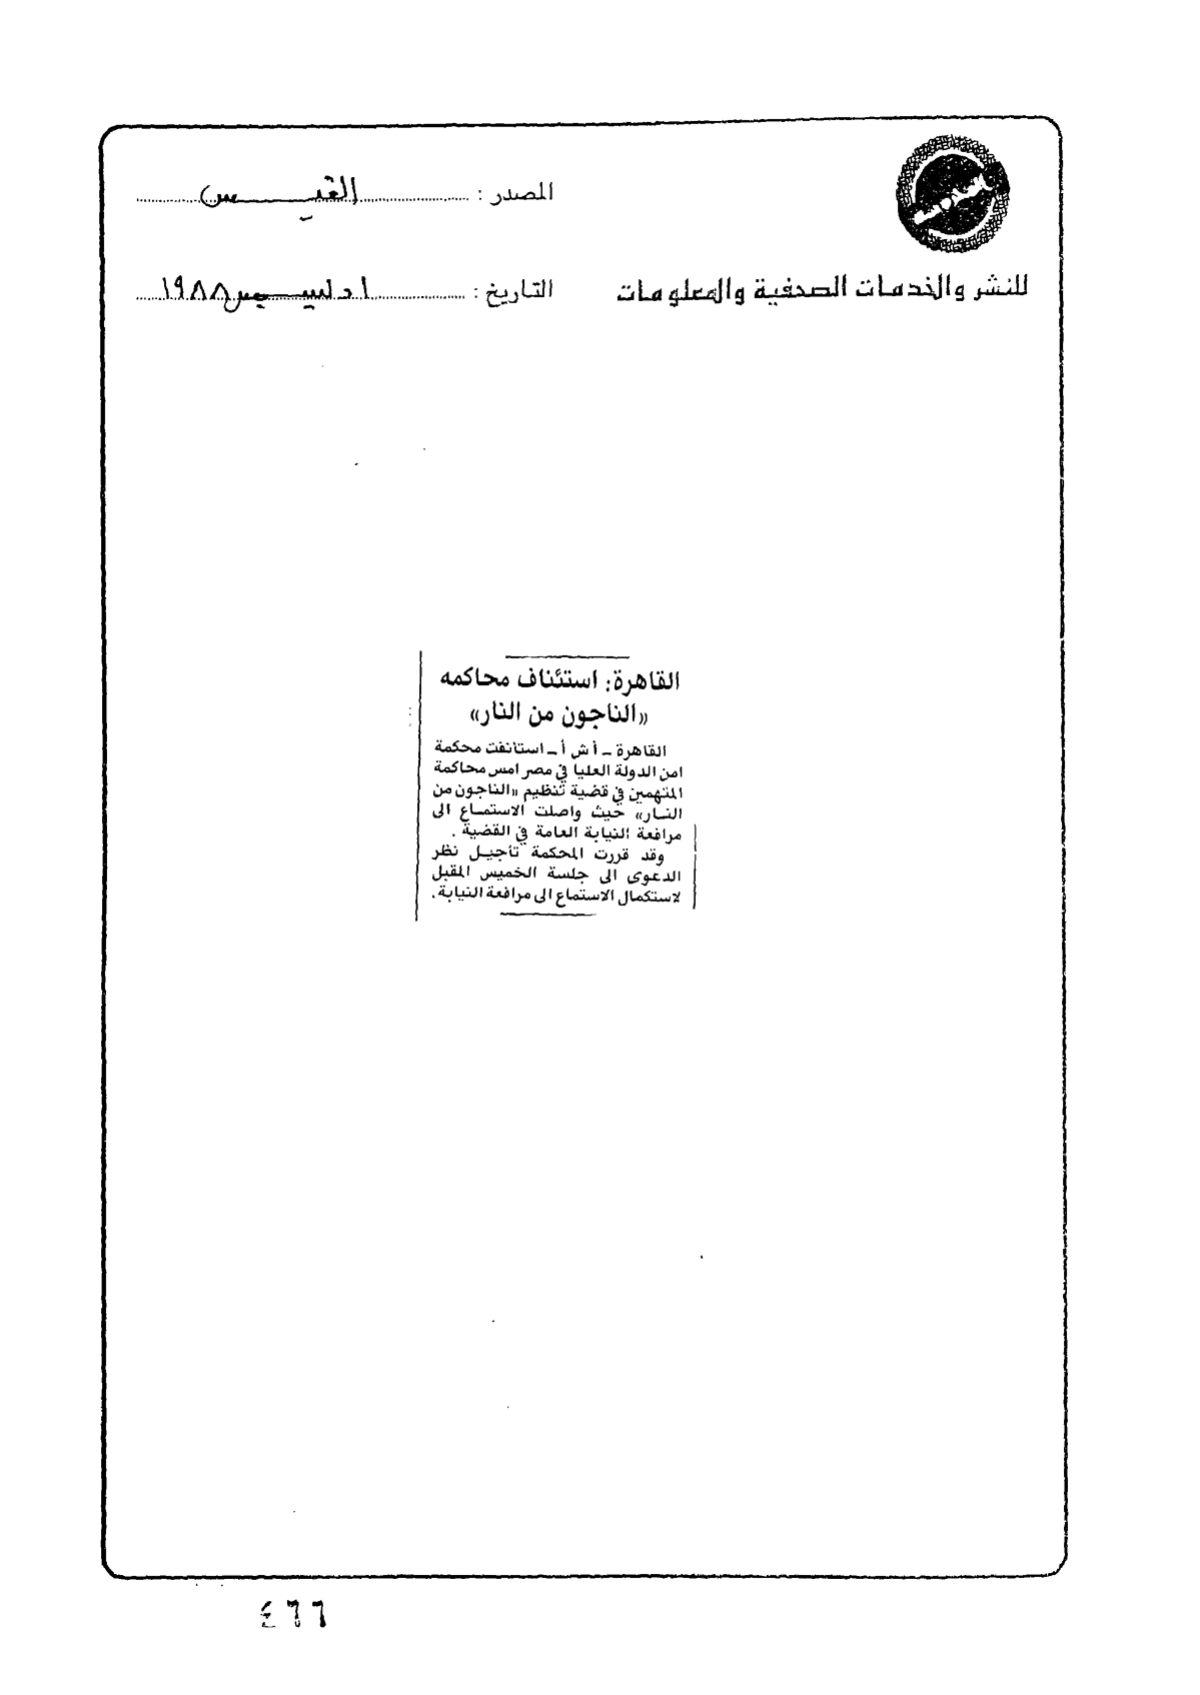 المصدر : القبس
للنشر والخدمات الصحفية والمعلومات
التاريخ : ١ ديسمبر ١٩٨٨
القاهرة: استئناف محاكمه
«الناجون من النار»
القاهرة ـ أ ش أ ـ استانفت محكمة
امن الدولة العليا في مصر امس محاكمة
المتهمين في قضية تنظيم «الناجون من
النار» حيث واصلت الاستماع الى
مرافعة النيابة العامة في القضية .
وقد قررت المحكمة تأجيل نظر
الدعوى الى جلسة الخميس المقبل
لاستكمال الاستماع الى مرافعة النيابة.
٤٦٦